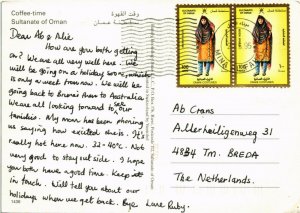 Coffee-time
Sultanate of Oman
وقت القهوة
سلطنة عمان
Dear Ab & Alie
How are you both getting
on? We are all very well here. We
will be going on a holiday soon, which
is only a week from now. We will be
going back to Brunei then to Australia
We are all looking forward to see our
families. My mum has been phoning
us saying how excited she is. It's
really hot here now. 32-40°C. Not
very good to stay out side. I hope
you both have a good time. Keep
in touch. Will tell you about our
holidays when we get back. Bye Love Ruby.
Ab Crans
Allerheiligenweg 31
4834 Tm. BREDA
The Netherlands.
SULTANATE OF OMAN
100
SULTANATE OF OMAN
100
1438